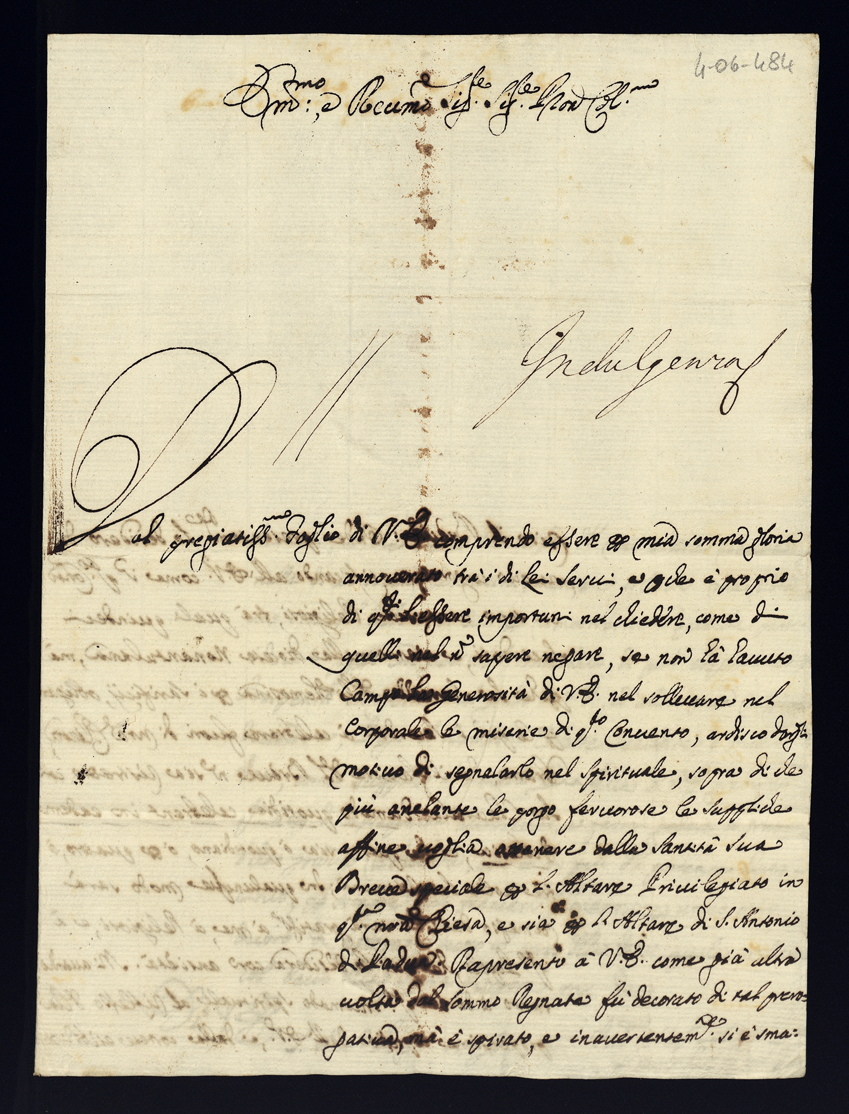 4-06-484
Em.mo, e R.cumo Sig.re Sig.re Pron Col.mo
Indulgenza
Dal pregiatiss.mo foglio di V.E. comprendo essere p mia somma gloria
annouerato trà i di lei serui, e che è proprio
di q.ti l'essere importuni nel chiedere, come di
quelli nel n sapere negare, se non hà hauuto
Campo la Generosità di V.E. nel solleuare nel
Corporale le miserie di q.to Conuento, ardisco dargli
motiuo di segnelarlo nel spirituale, sopra di che
più anelante le porgo feruorose le suppliche
affine uoglia ottenere dalla Santità sua
Breue speciale p l'Altare Priuilegiato in
q.ta nrã Chiesa, e sia p l'Altare di S. Antonio
di Padua. Rapresento à V.E. come già altra
uolta dal sommo Regnate fù decorato di tal prero=
gatiua, mà è spirato, e inauertentem.te si è sma=